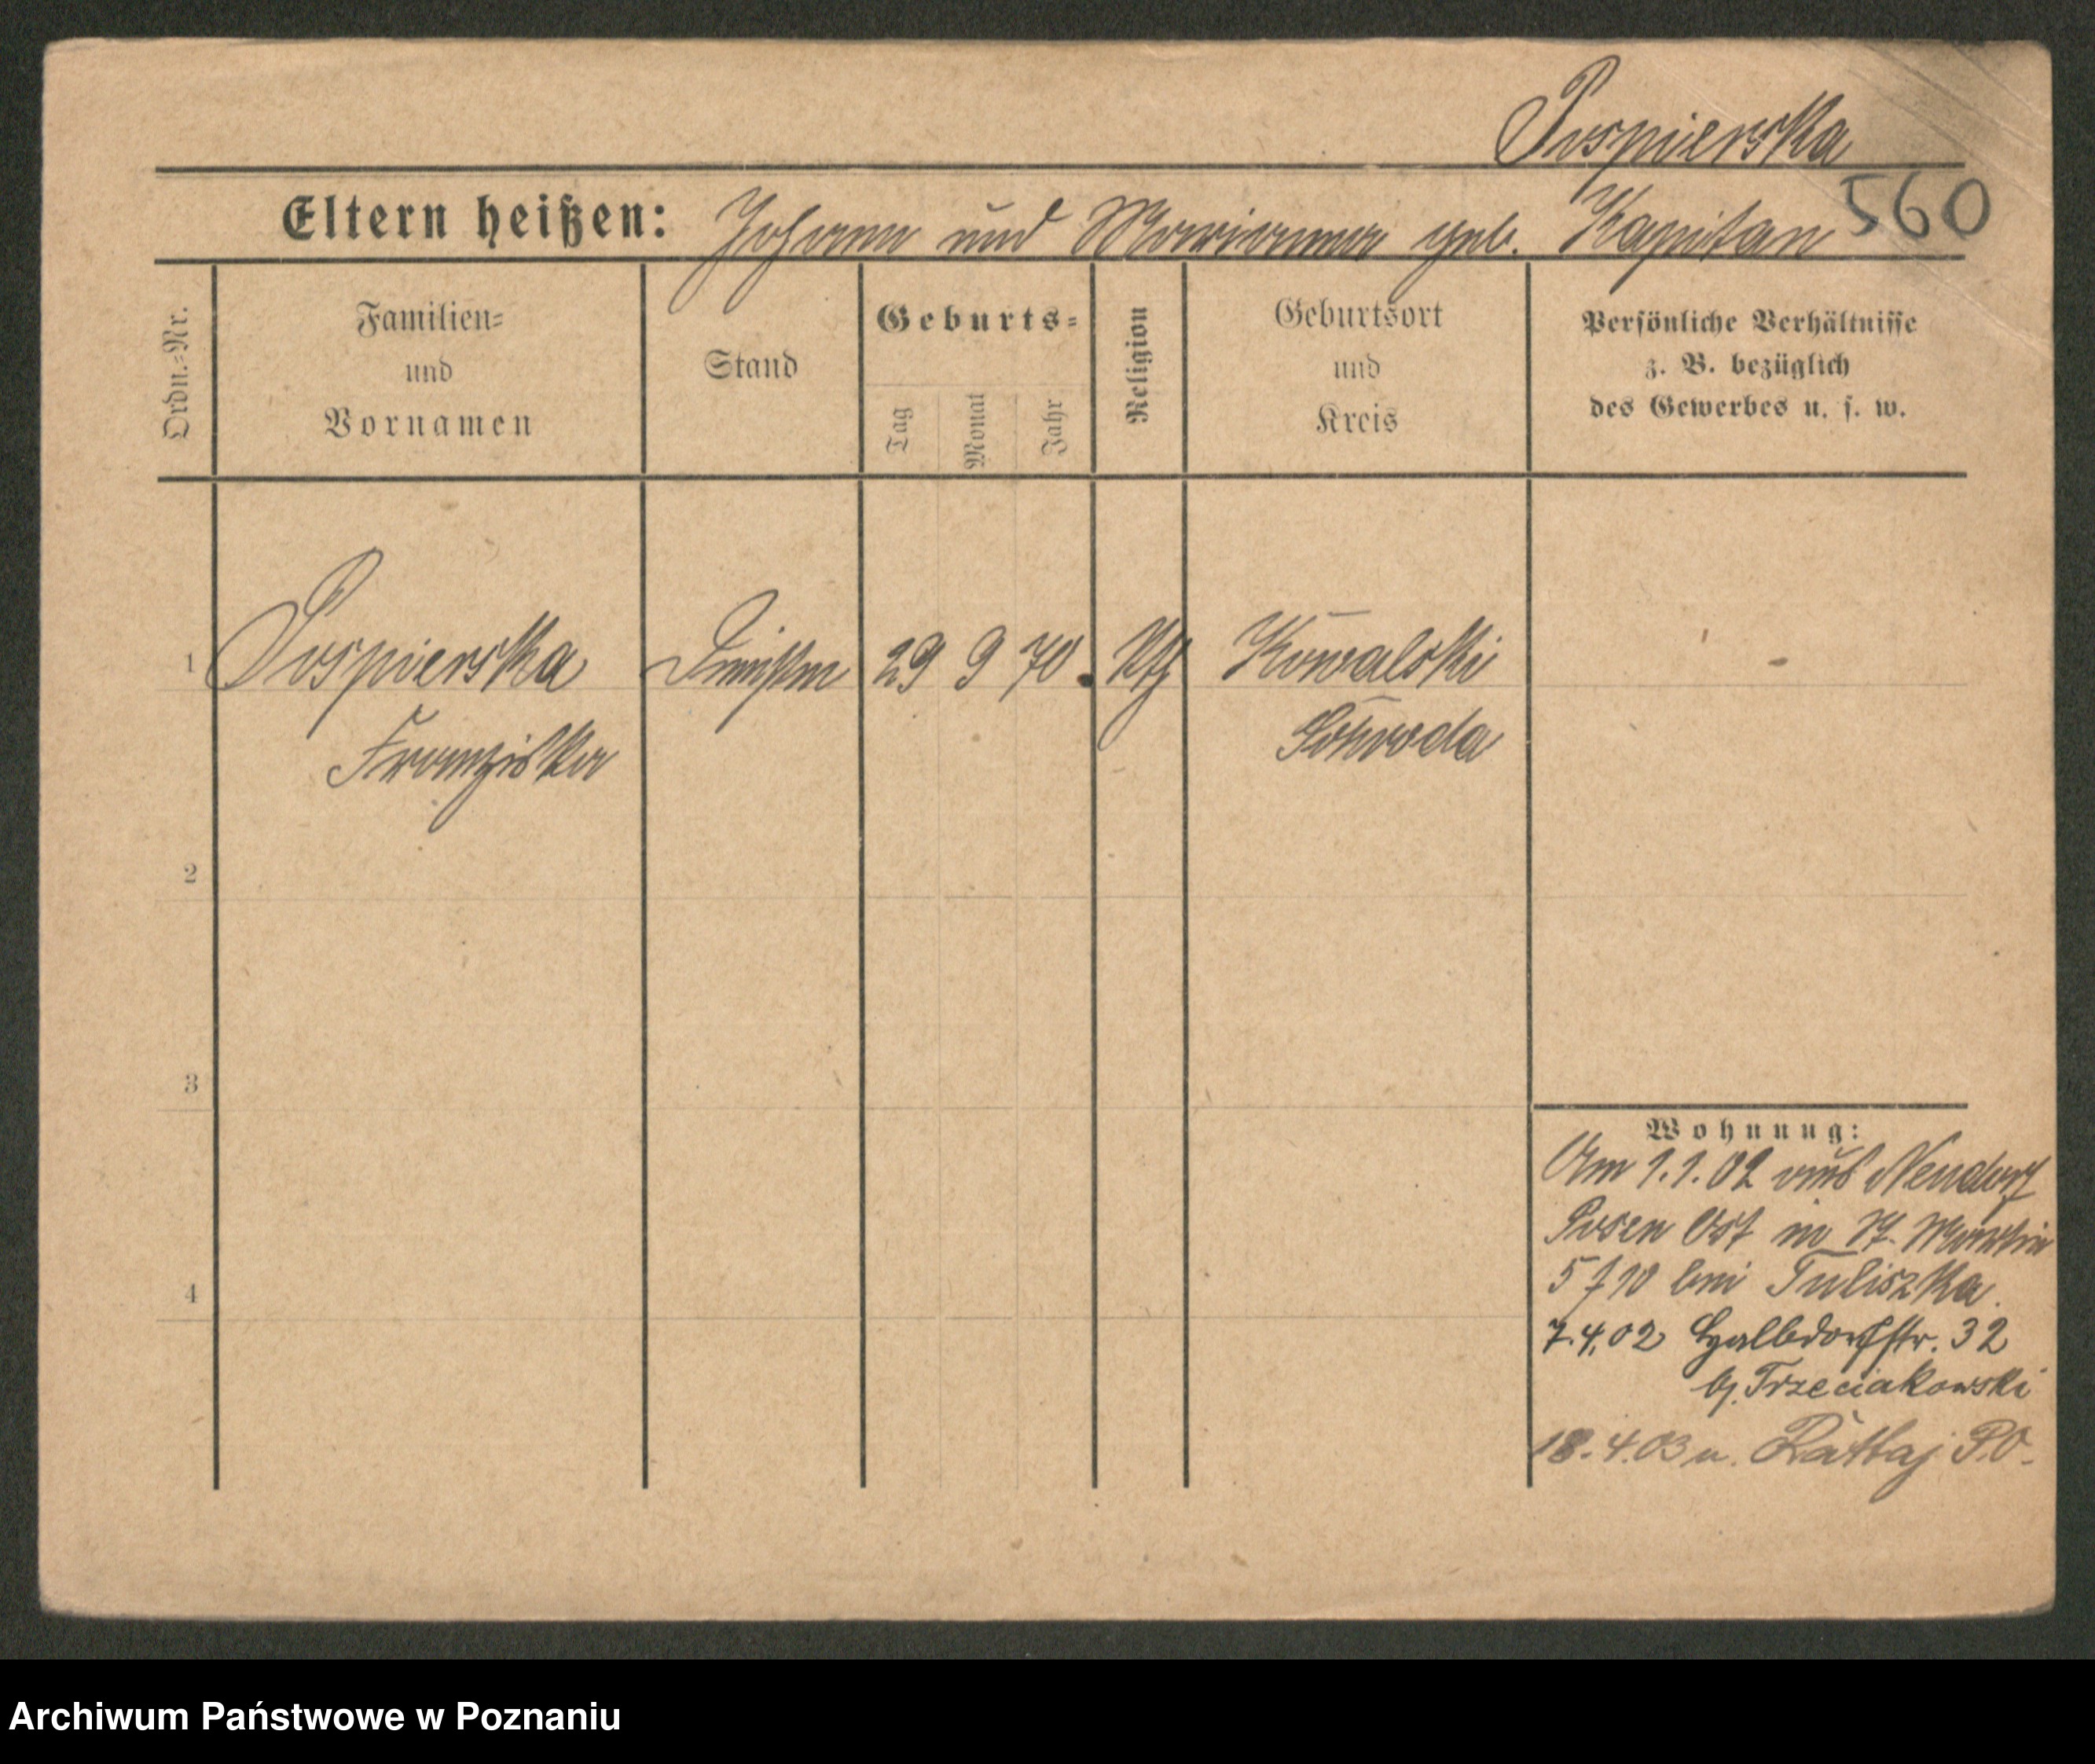 Pospierska
560
Eltern heißen: Johann und Marianna geb. Kapitan
Ordn.-Nr.
Familien-
und
Vornamen
Stand
Geburts-
Tag
Monat
Jahr
Religion
Geburtsort
und
Kreis
Persönliche Verhältnisse
z. B. bezüglich
des Gewerbes u. s. w.
1 Pospierska 29 9 70. Kth Kowalski -
Franziska Schroda
2
3
4
Wohnung:
Am 1.1.02 aus Neudorf
Posen Ost in St. Martin
bei Tuliszka.
7.4.02 Halbdorfstr. 32
b. Trzeciakowski
18.4.03 n. Rattaj P.O.
Archiwum Państwowe w Poznaniu